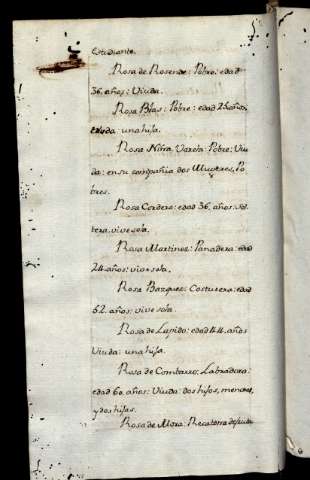 Estudiante.
Rosa de Rosende: Pobre: edad
36. años: Viuda.
Rosa Blas: Pobre: edad 25 años,
viuda una hija.
Rosa Neira Varela: Pobre: Viu
da: en su compañia dos Mugeres, Po
bres.
Rosa Cordero: edad 36. años: Sol
tera, vive sola.
Rosa Martinez: Panadera: edad
24. años: vive sola.
Rosa Bazquez: Costurera: edad
52. años: vive sola.
Rosa de Lapido: edad 44. años
Viuda: una hija.
Rosa de Combarro: Labradora:
edad 60. años: Viuda: dos hijos, menores,
y dos hijas.
Rosa de Mora: Recatera